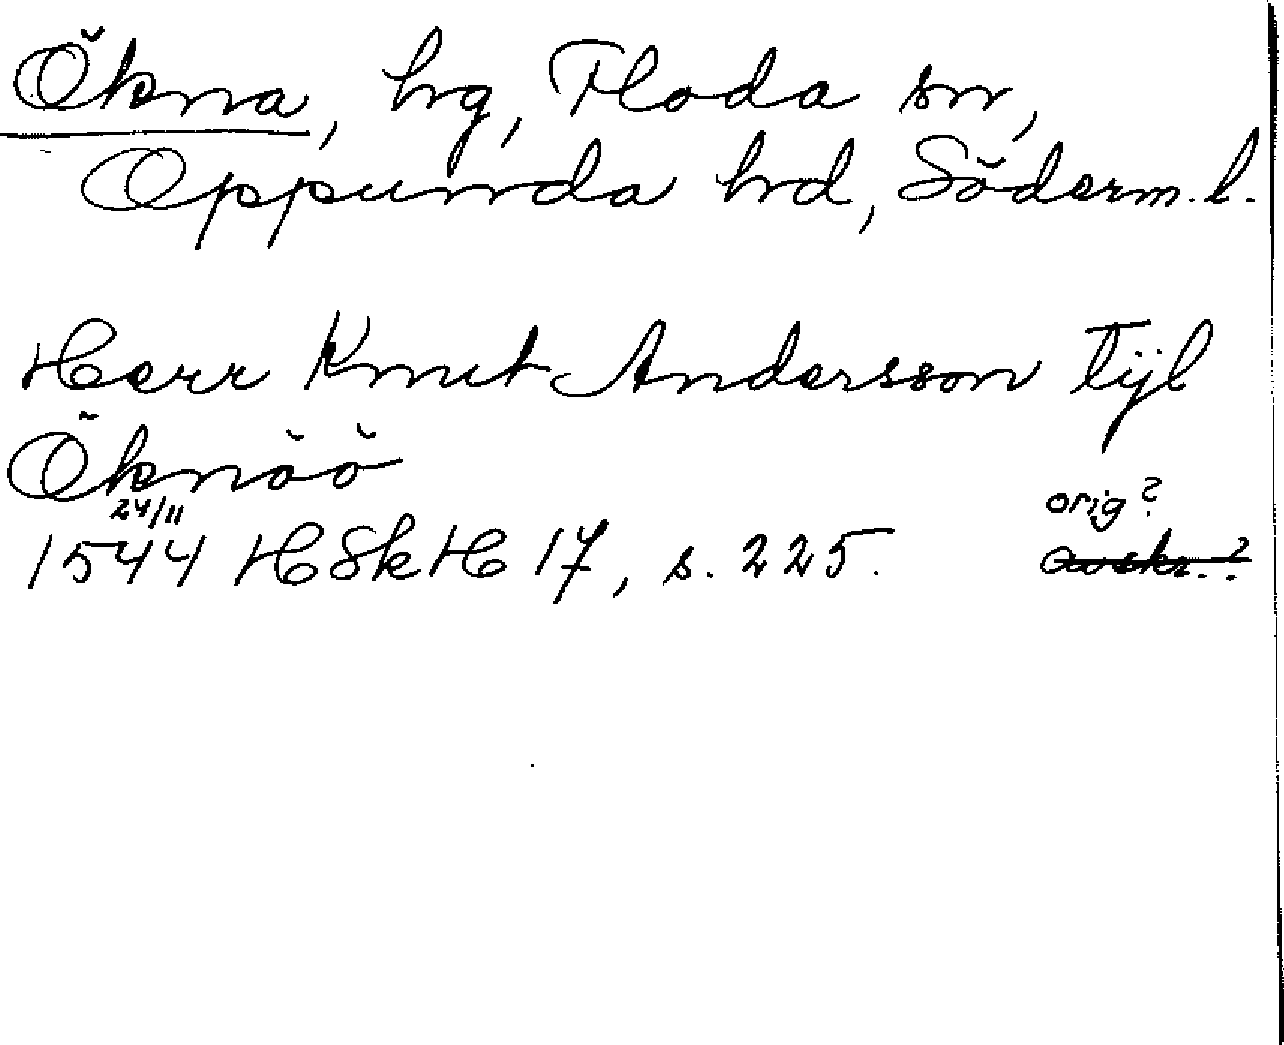 Ökna, hg, Floda sn,
Oppunda hd, Söderm. l.
Herr Knut Andersson Tijl
Öknöö
24/11
orig?
1544 HSkH 17, s. 225. avskr.?